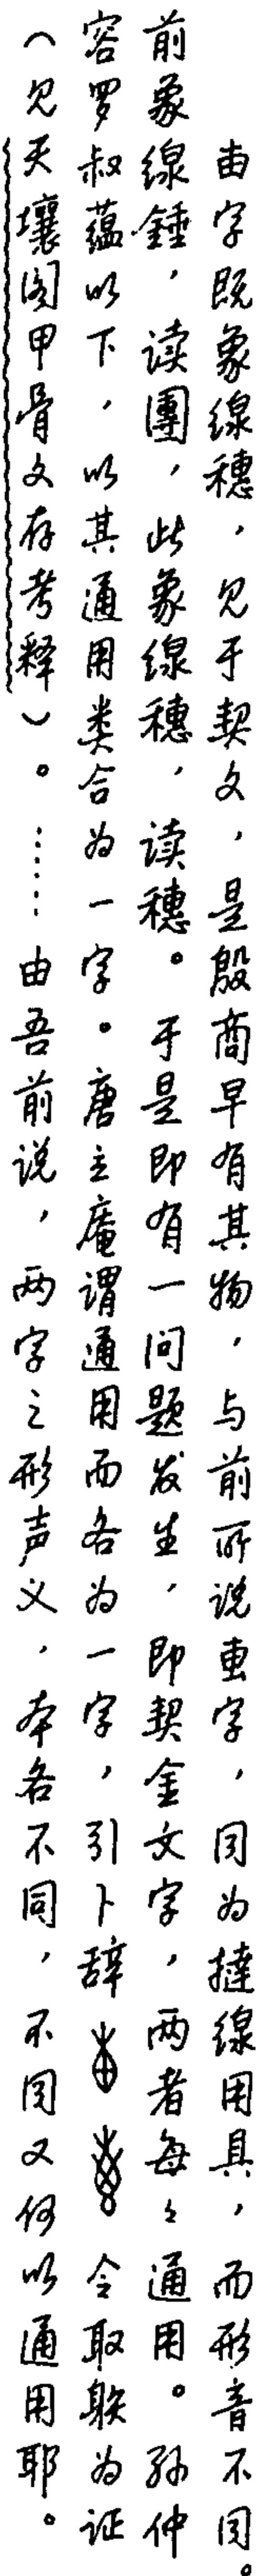 由字既象線穗，見于契文，是殷商早有其物，与前所说叀字，同为撻線用具，而形音不同。
前象線錘，读團，此象線穗，读穗。于是即有一问题发生，即契金文字，两者每々通用。孙仲
容罗叔蕴以下，以其通用类合为一字。唐立庵谓通用而各为一字，引卜辞令取躾为证
（见天壤阁甲骨文存考释）。……由吾前说，两字之形声义，本各不同，不同又何以通用耶。